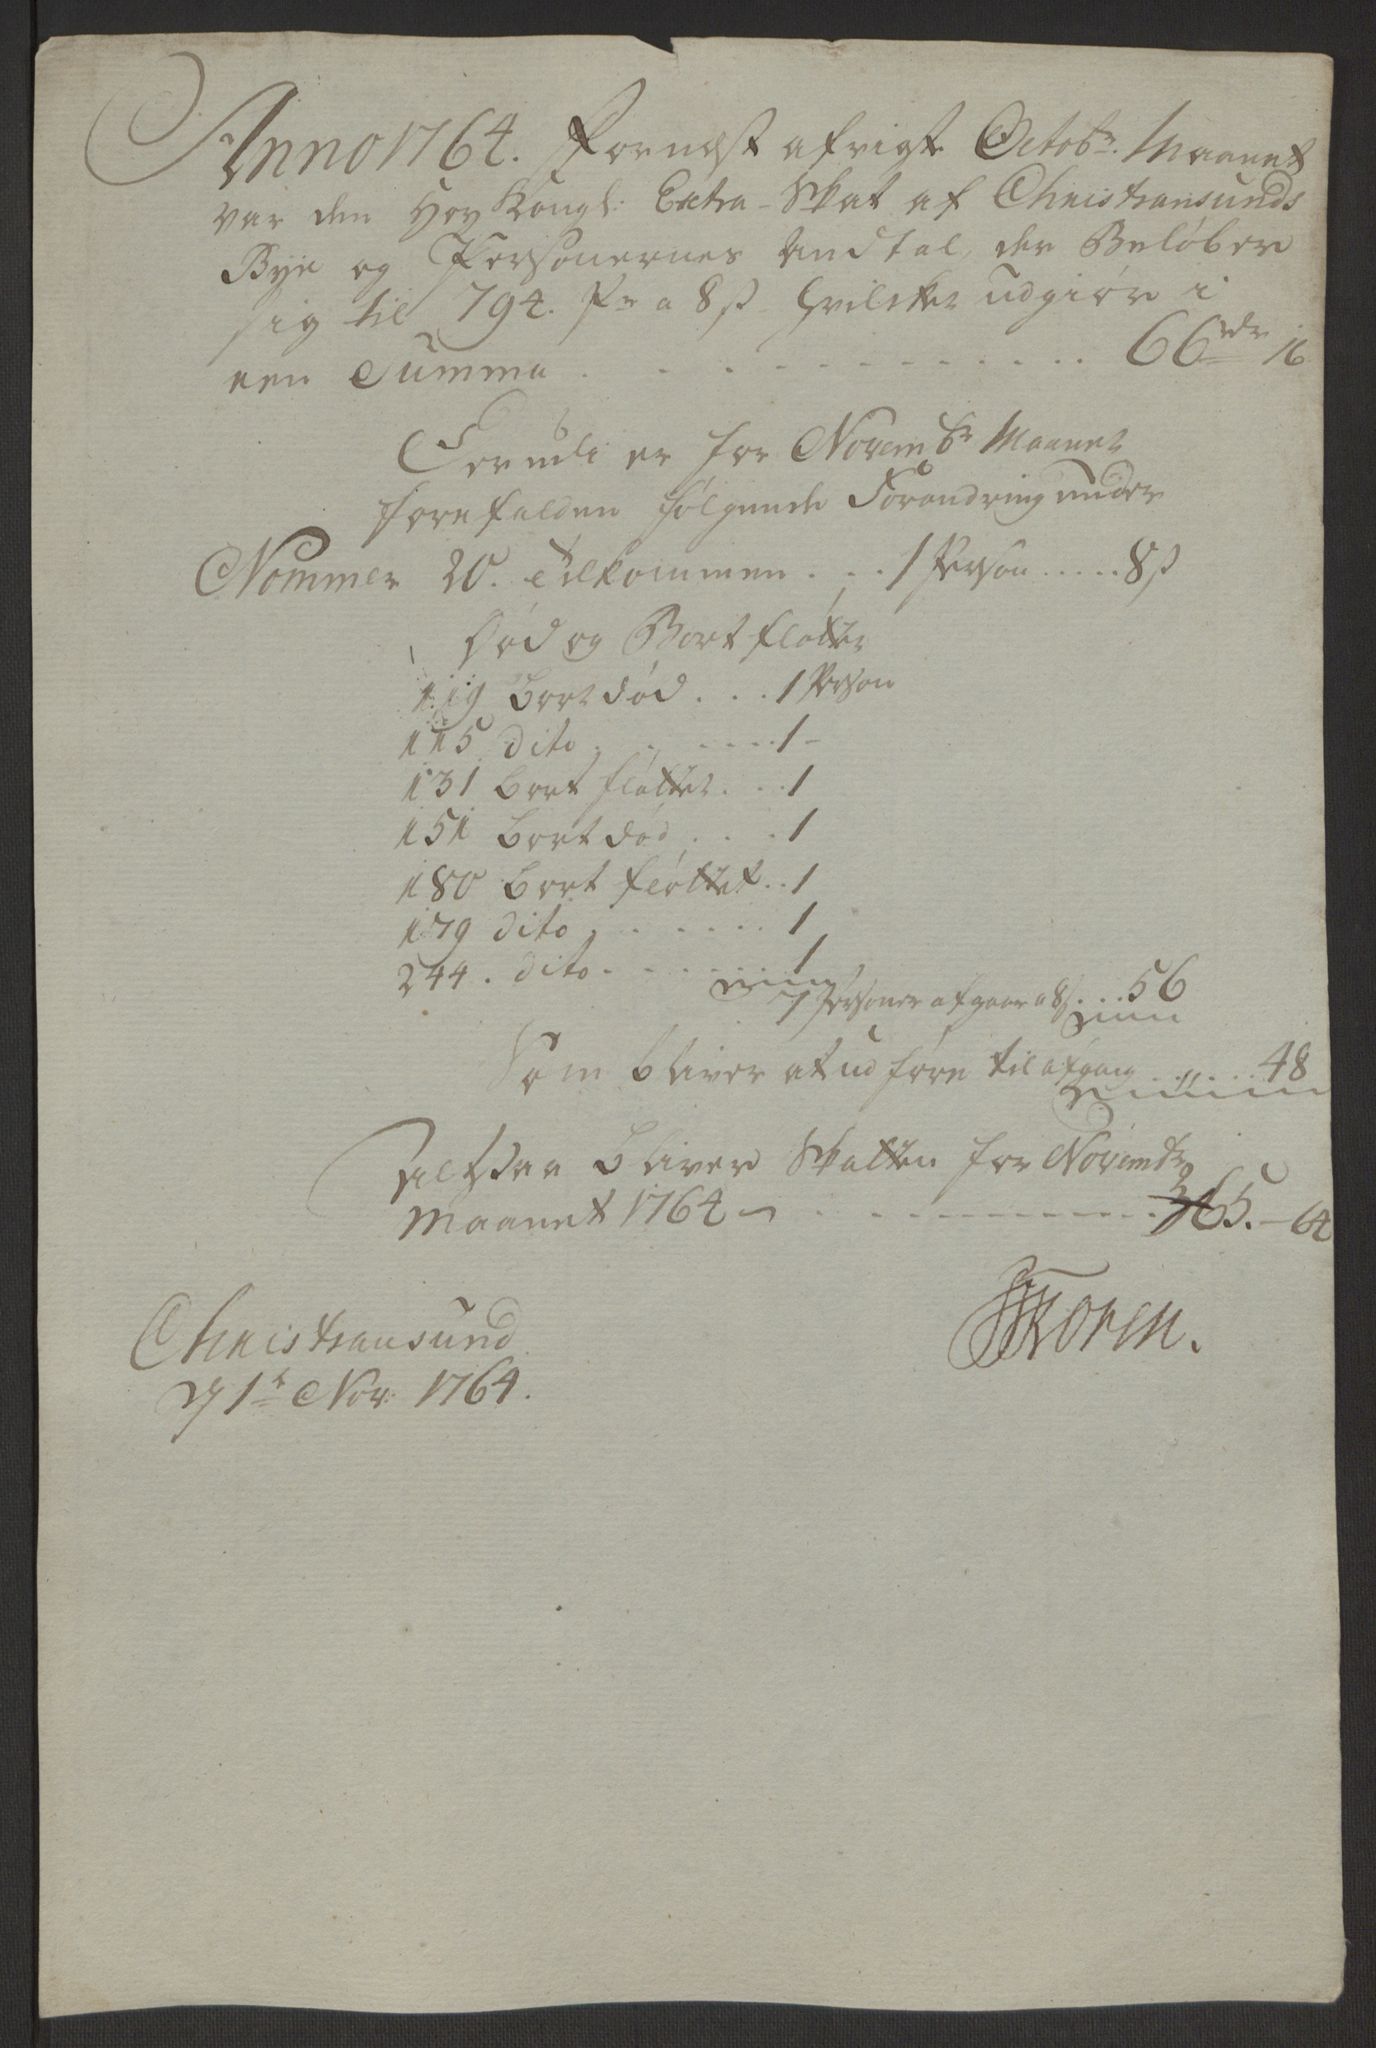 Anno 1764. Fornest afvigte Octobr. Maanet
var den Høy Kongl: Extra-Skat af Christiansunds
Bye og Personernes Andtal, der Beløber
sig til 794. Pr a 8 s hvilcket udgiør i
een Summa . . . . . . . . . . . 66 rdr 16
er for Novembr Maanet
forefalden følgende Forandring under
Nommer 20. Tilkommen . . . 1 Person . . . . . 8 s
Død og Bort fløtter
119 Bort død . . . 1 Person
115 dito . . . . . . . 1 -
131 Bort fløttet . . . 1
151 Bort død . . . . 1
180 Bort fløttet . . 1
179 dito . . . . . . 1
244. dito . . . . . . . 1
7 Personer afgaar a 8 s. . . . 56
Som bliver at udføre til afgang . . " . . . 48
altsaa bliver Skatten for Novembr
Maanet 1764 - . . . . . . . . . . . 65. - 64
Christiansund
d 1te Nov: 1764.
Koren.